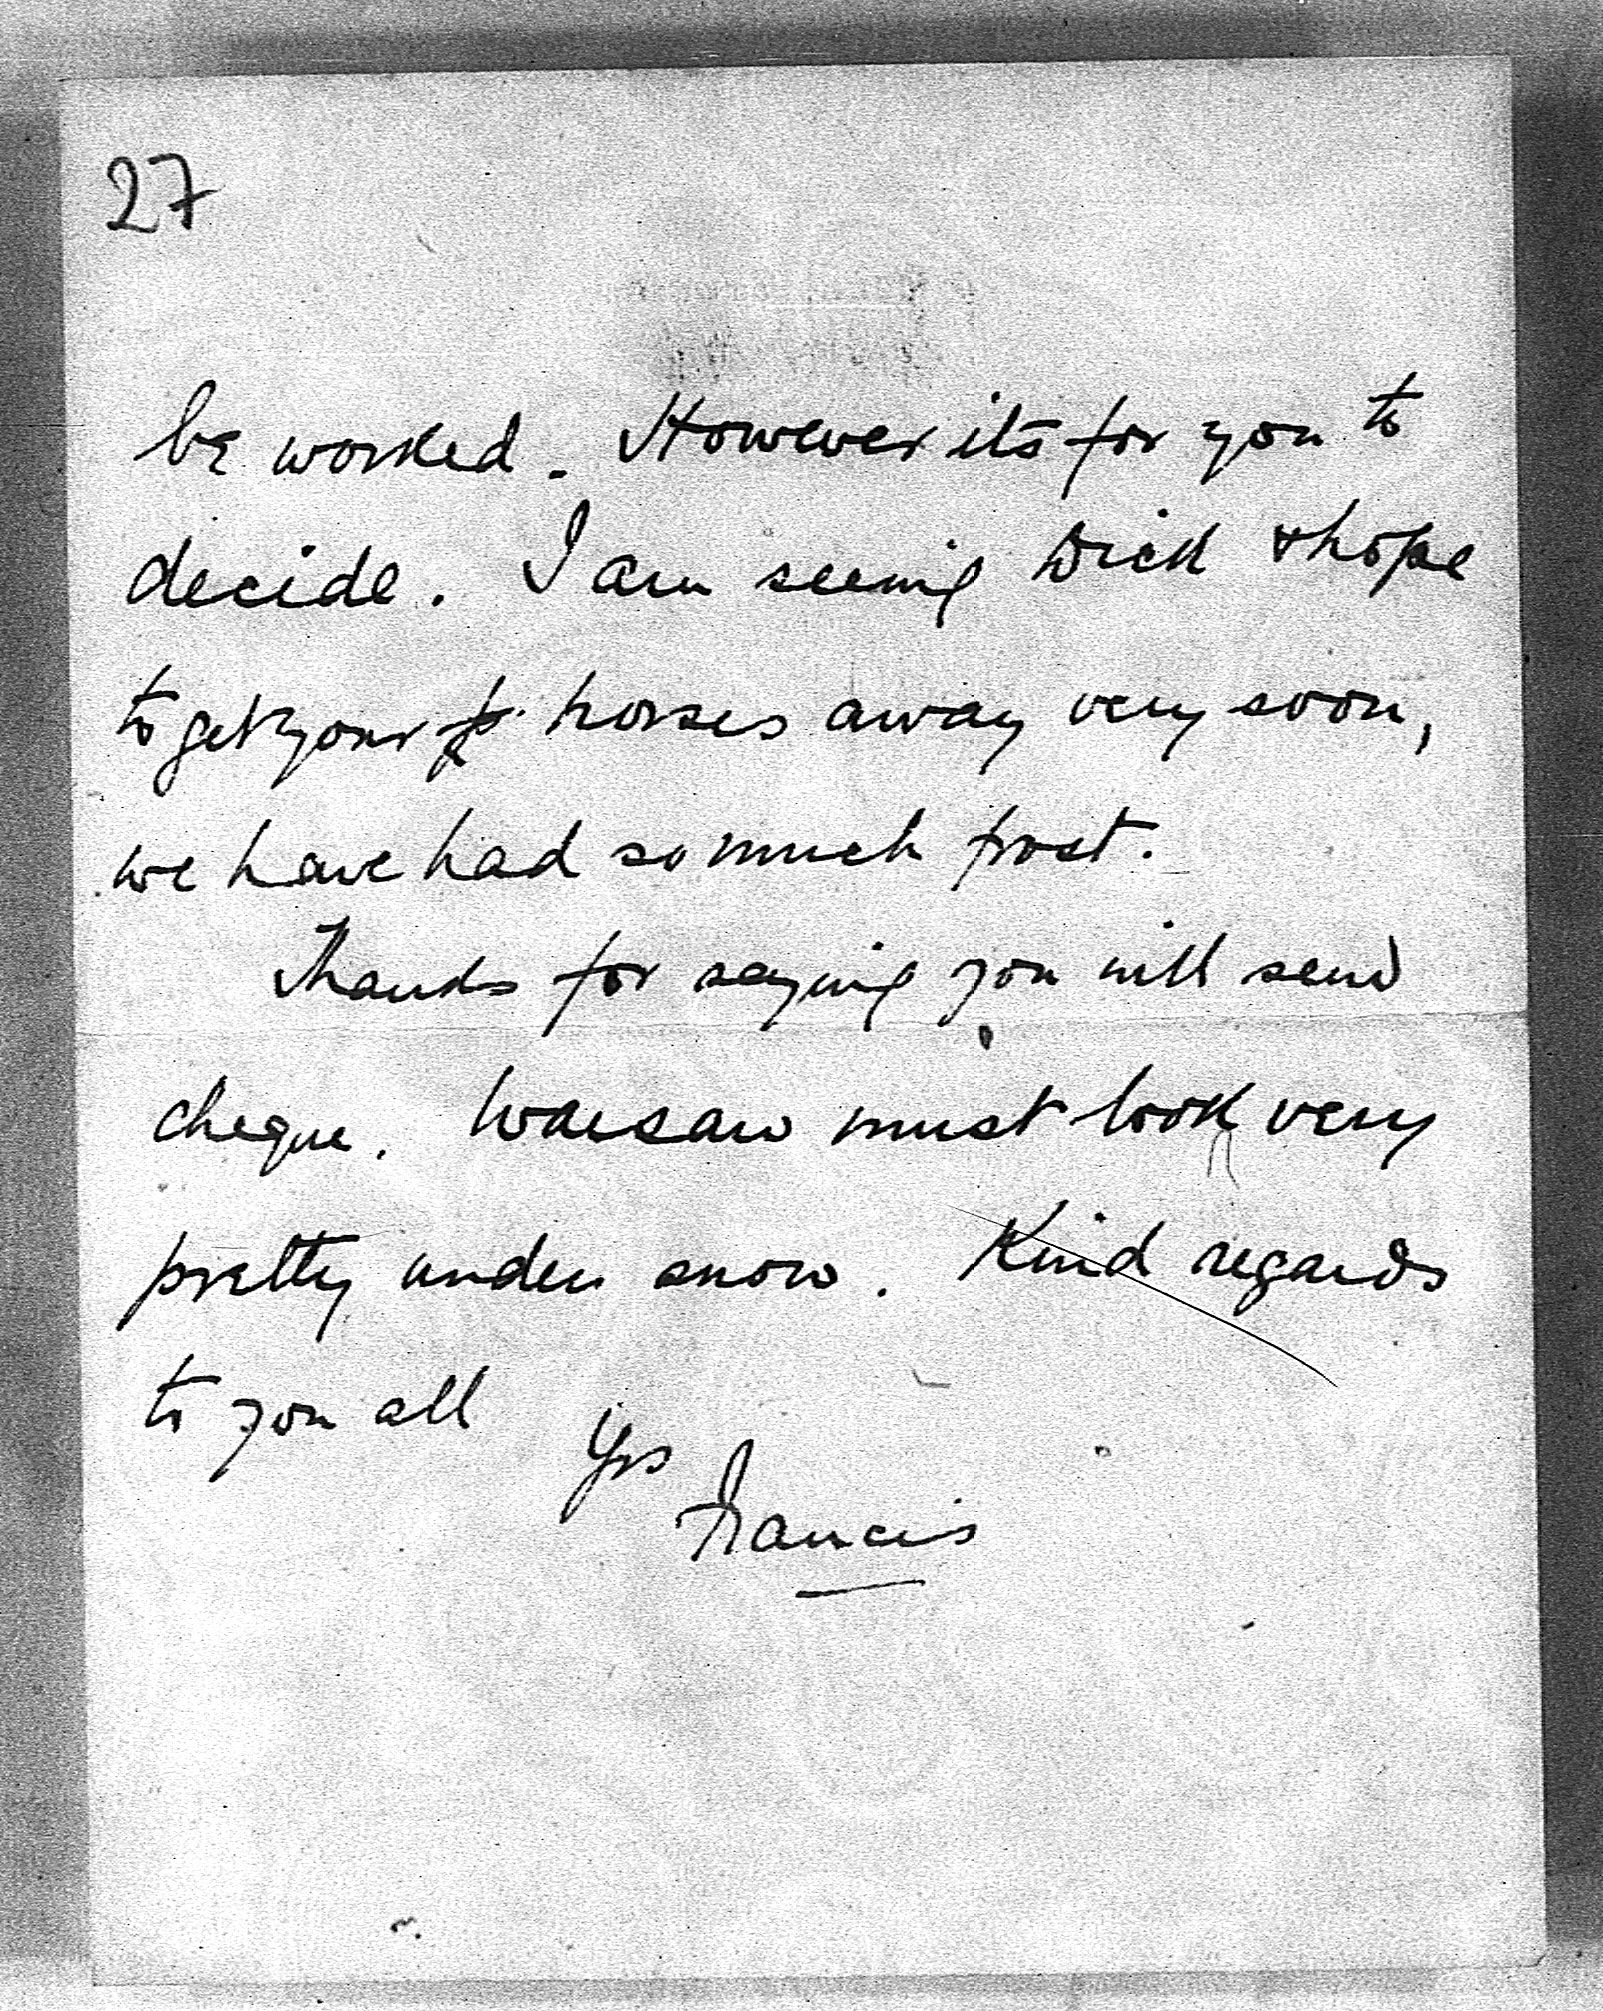 27
be worked. However its for you to
decide. I am seeing Dick & hope
to get your horses away very soon,
we have had so much frost.
Thanks for saying you will send
cheque. Warsaw must look very
pretty under snow. Kind regards
to you all
Yrs
Francis